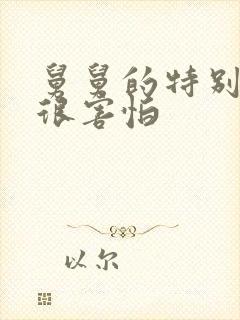 舅舅的特别
很害怕
以尔